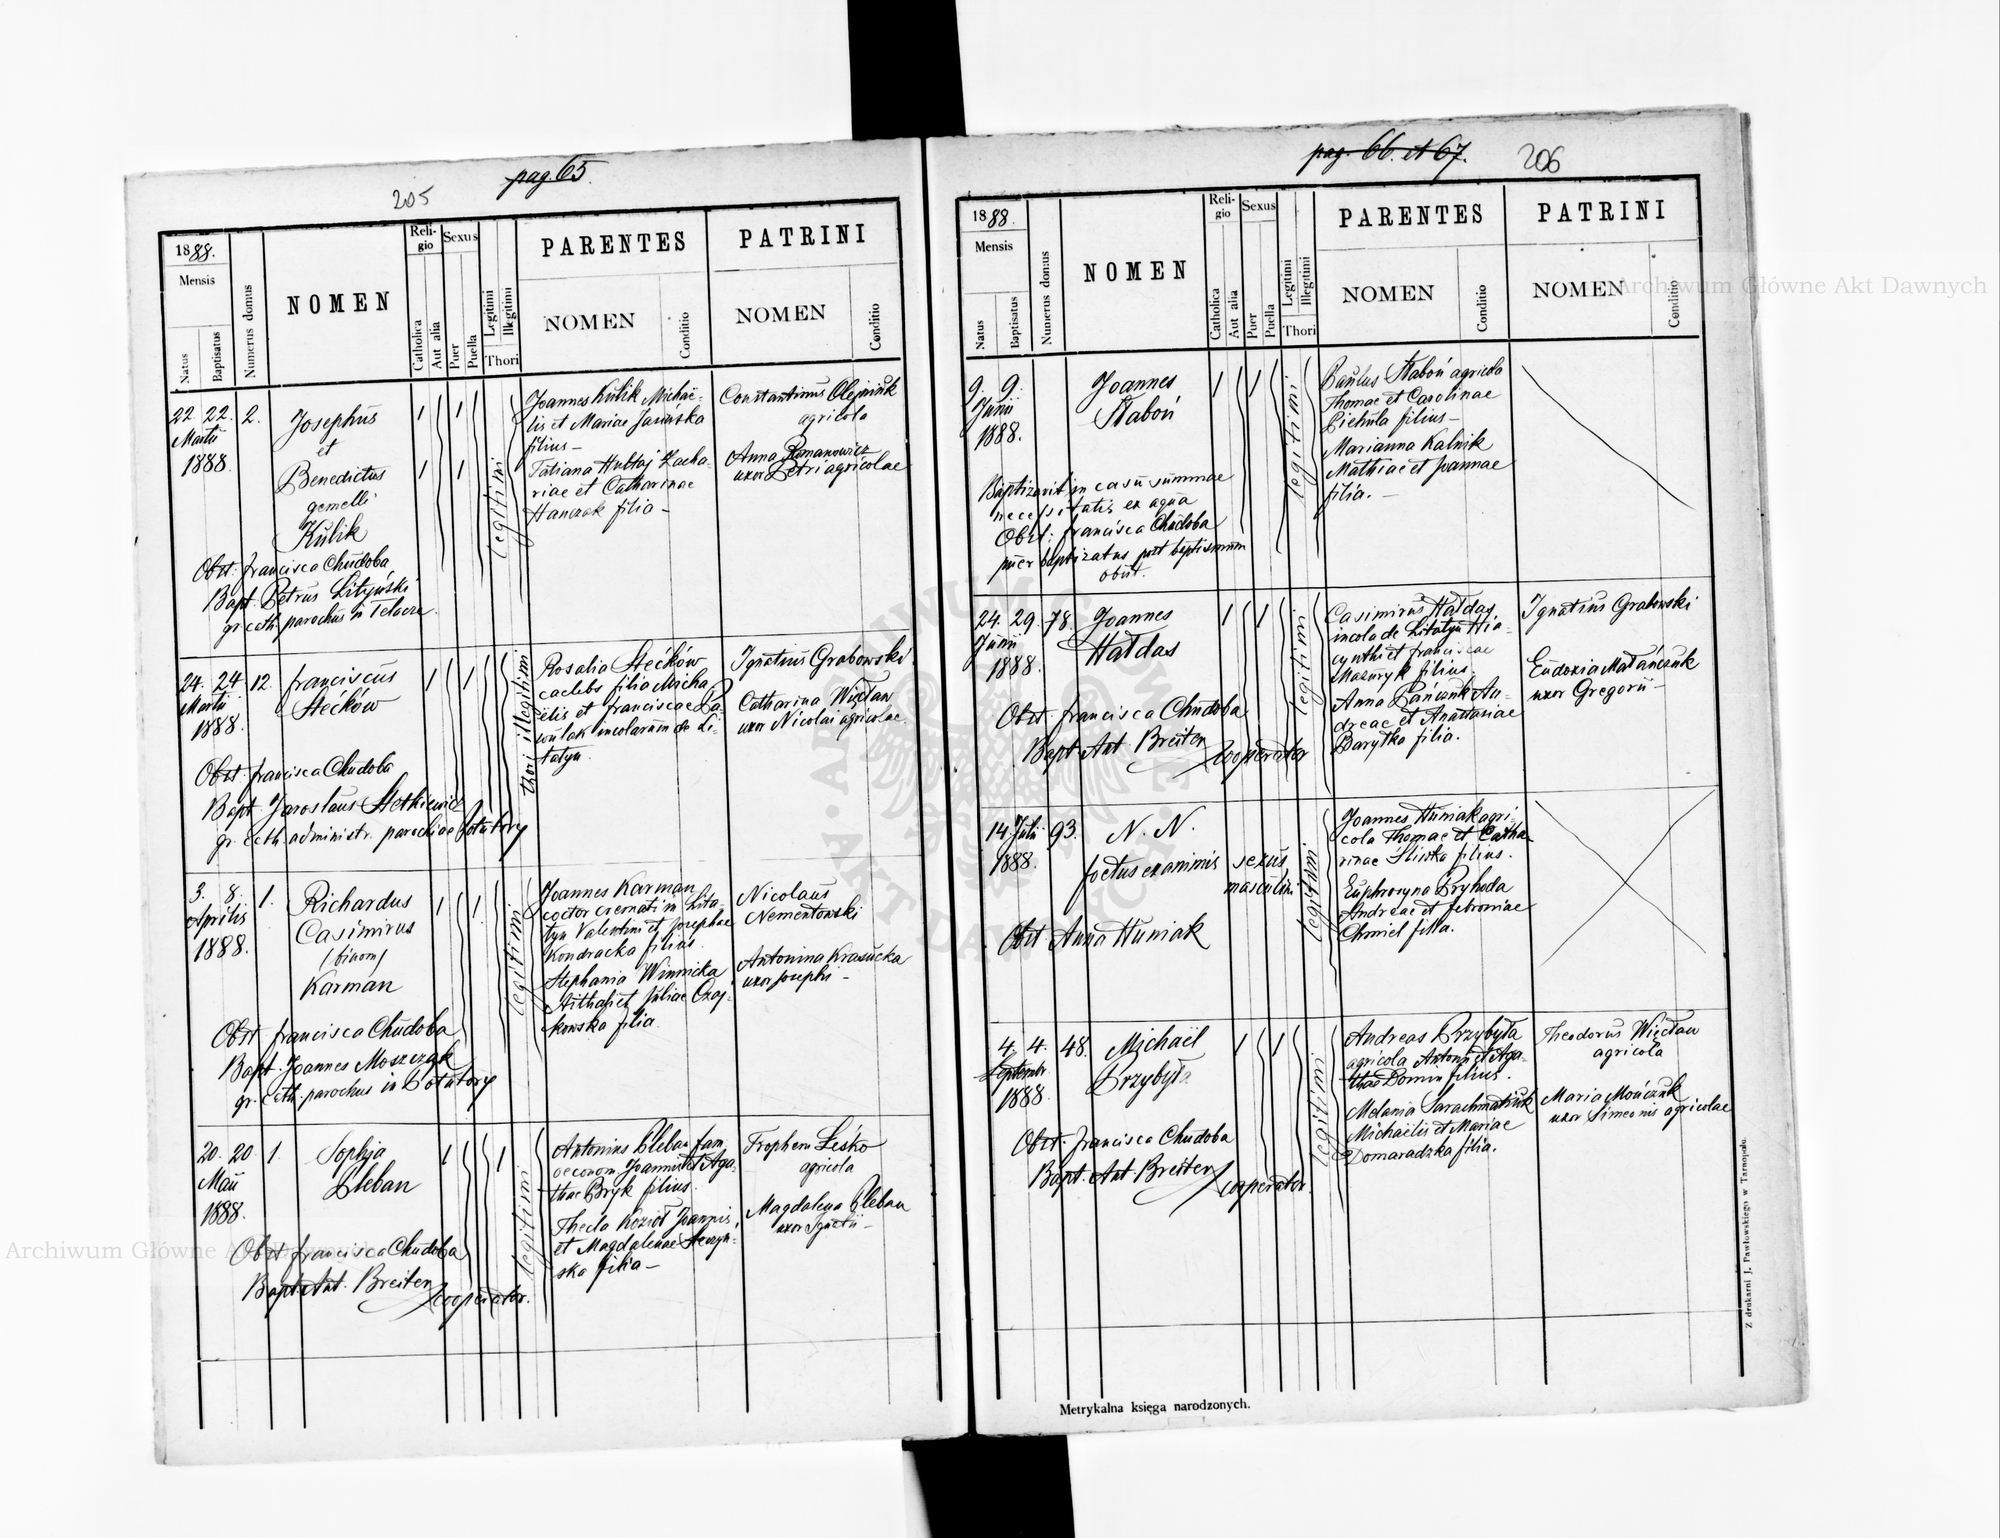 pag. 65.
205
1888.
Mensis
Natus
Baptisatus
Numerus domus
NOMEN
Religio
Catholica
Aut alia
Sexus
Puer
Puella
Legitimi
Illegitimi
Thori
PARENTES
NOMEN
Conditio
PATRINI
NOMEN
Conditio
22. 22. 2.
Martii
1888.
Josephus
et
Benedictus
gemelli
Kulik
Obst. Francisca Chudoba
Bapt. Petrus Lityński
gr. cath. parochus in
1 1
1 1
legitimi
Joannes Kulik Michae-
lis et Mariae
filius –
Tatiana Hubtaj Zacha-
riae et Catharinae
Hanczak filia –
Constantinus Olejniuk
agricola
Anna Romanowicz
uxor Petri agricolae
24. 24. 12.
Martii
1888.
Franciscus
Stećków
Obst. Francisca Chudoba
Bapt. Jaroslaus Stetkiewicz
gr. cath. administr. parochiae Potutory
1 1
thori illegitimi
Rosalia Stećków
caelebs filia Micha-
ëlis et Franciscae Pa-
wulak incolarum de Li-
tatyn.
Ignatius Grabowski
Catharina Więcław
uxor Nicolai agricolae.
3. 8. 1.
Aprilis
1888.
Richardus
Casimirus
/binom/
Karman
Obst. Francisca Chudoba
Bapt. Joannes Moszczak
gr. cath. parochus in Potutory
1 1
legitimi
Joannes Karman
coctor cremati in Lita-
tyn Valentini et Josephae
Kondracka filius.
Stephania Winnicka
et Juliae Czaj-
kowska filia.
Nicolaus
Nementowski
Antonina Krasucka
uxor Josephi –
20. 20. 1.
Maii
1888.
Sophja
Pleban
Obst. Francisca Chudoba
Bapt. Ant. Breiter
cooperator.
1 1
legitimi
Antonius Pleban fam.
oeconom. Joannis et Aga-
thae Bryk filius.
Thecla Kozioł Joannis
et Magdalenae
ska filia –
Trophem Leśko
agricola
Magdalena Pleban
uxor Ignatii –
pag. 66. et 67.
206
1888.
Mensis
Natus
Baptisatus
Numerus domus
NOMEN
Religio
Catholica
Aut alia
Sexus
Puer
Puella
Legitimi
Illegitimi
Thori
PARENTES
NOMEN
Conditio
PATRINI
NOMEN
Conditio
9. 9.
Junii
1888.
Joannes
Staboń
Baptizavit in casu summae
necessitatis ex aqua
Obst: Francisca Chudoba
puer baptizatus post baptismum
obiit.
1 1
legitimi
Paulus Staboń agricola
Thomae et Carolinae
Piehula filius –
Marianna Kalnik
Mathiae et Joannae
filia. –
24. 29. 78.
Junii
1888.
Joannes
Hałdas
Obst. Francisca Chudoba
Bapt. Ant. Breiter
cooperator
1 1
legitimi
Casimirus Hałdas
incola de Litatyn Hia-
cynthi et Franciscae
Mazuryk filius.
Anna Pańczuk An-
dreae et Anastasiae
Barytka filia.
Ignatius Grabowski
Eudoxia Matańczuk
uxor Gregorii –
14 Julii 93.
1888.
N. N.
foetus exanimis sexus
masculini
Obst Anna Huniak
legitimi
Joannes Huniak agri-
cola Thomae et Catha-
rinae Śliwka filius.
Euphrosyna Pryhoda
Andreae et Febroniae
Chmiel filia.
4. 4. 48.
Septembr.
1888.
Michaël
Przybyła
Obst. Francisca Chudoba
Bapt. Ant Breiter
cooperator.
1 1
legitimi
Andreas Przybyła
agricola Antonii et Aga-
thae Domin filius.
Melania Sarachmatiuk
Michaëlis et Mariae
Domaradzka filia.
Theodorus Więcław
agricola
Maria Mończuk
uxor Simeonis agricolae
Metrykalna księga narodzonych.
Z drukarni J. Pawłowskiego w Tarnopolu.
Archiwum Główne Akt Dawnych
Archiwum Główne Akt Dawnych